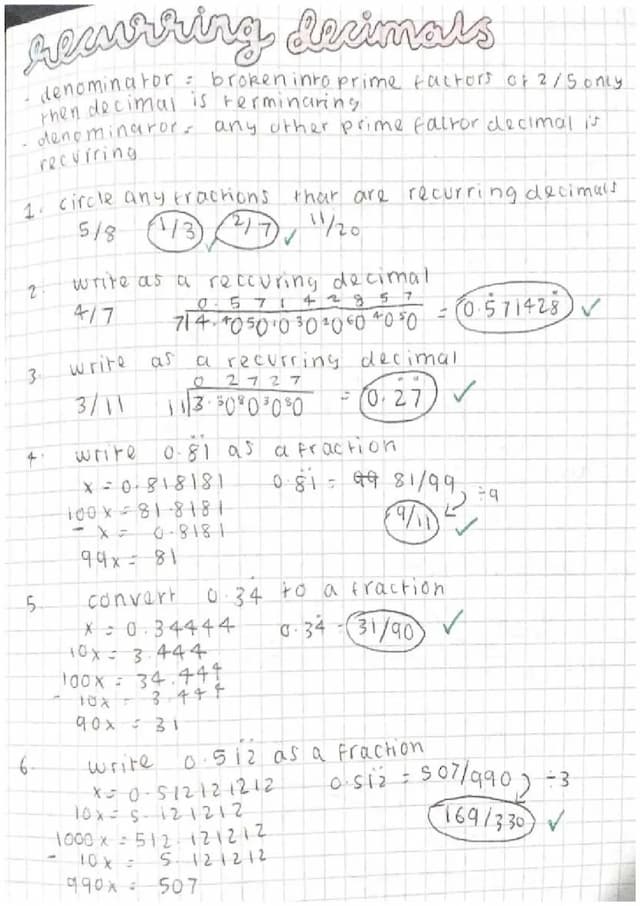 recurring decimals
- denominator = broken into prime factors of 2/5 only
then decimal is terminaring
- denominator = any other prime factor decimal is
recurring
1. circle any fractions that are recurring decimals
5/8 1/3 ✓ 2/7 ✓ 11/20
2. write as a reccuring decimal
0.57142857
4/7 7|4.⁴0⁵0¹0³0²0⁶0⁴0⁵0 = 0.5̇71428̇ ✓
3. write as a recurring decimal
0 2727
3/11 11|3.³0⁸0³0⁸0 = 0.2̇7̇ ✓
4. write 0.8̇1̇ as a fraction
x = 0.818181 0.8̇1̇ = 81/99
100x = 81.8181 ÷9
- x = 0.8181 9/11 ✓
99x = 81
5. convert 0.34̇ to a fraction
x = 0.34444 0.34̇ = 31/90 ✓
10x = 3.444
100x = 34.444
- 10x = 3.444
90x = 31
6. write 0.51̇2̇ as a fraction
x = 0.512121212 0.51̇2̇ = 507/990 ÷3
10x = 5.121212
1000x = 512.121212 169/330 ✓
- 10x = 5 121212
990x = 507